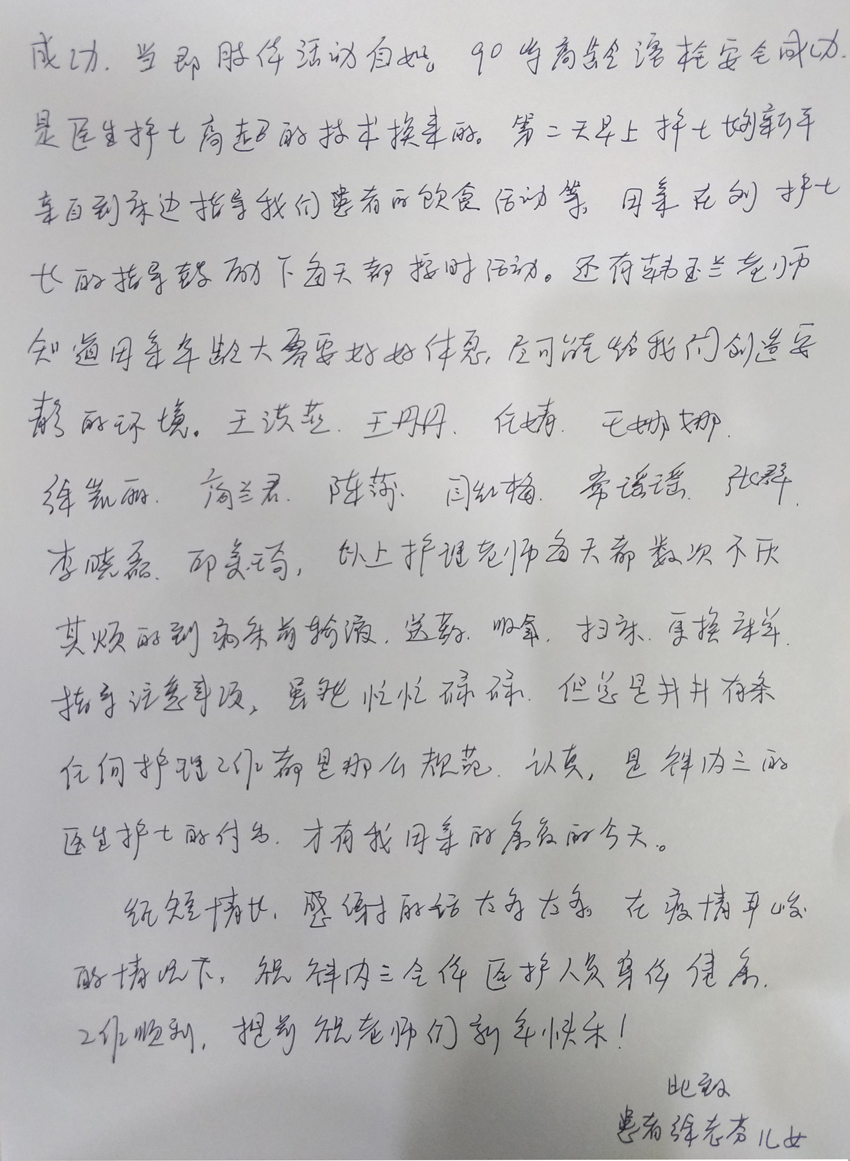 成功.当即肢体活动自如。90岁高龄溶栓安全成功.
是医生护士高超的技术换来的。第二天早上护士长刘新平
亲自到床边指导我们患者的饮食活动等,母亲在刘护士
长的指导鼓励下每天都按时活动。还有韩玉兰老师
知道母亲年龄大需要好好休息,尽可能给我们创造安
静的环境。王洪燕.王丹丹.任婧.王娜娜.
徐凯丽.蔺兰君.陈莎.闫红梅.常谣谣.张群.
李晓磊.邱美琦,以上护理老师每天都数次不厌
其烦的到病床前输液.送药.吸氧.扫床.更换床单.
指导注意事项,虽然忙忙碌碌.但总是井井有条
任何护理工作都是那么规范.认真,是神内三的
医生护士的付出.才有我母亲的康复的今天。
纸短情长.感谢的话太多太多,在疫情严峻
的情况下,祝神内三全体医护人员身体健康.
工作顺利,提前祝老师们新年快乐!
此致
患者徐志芬儿女